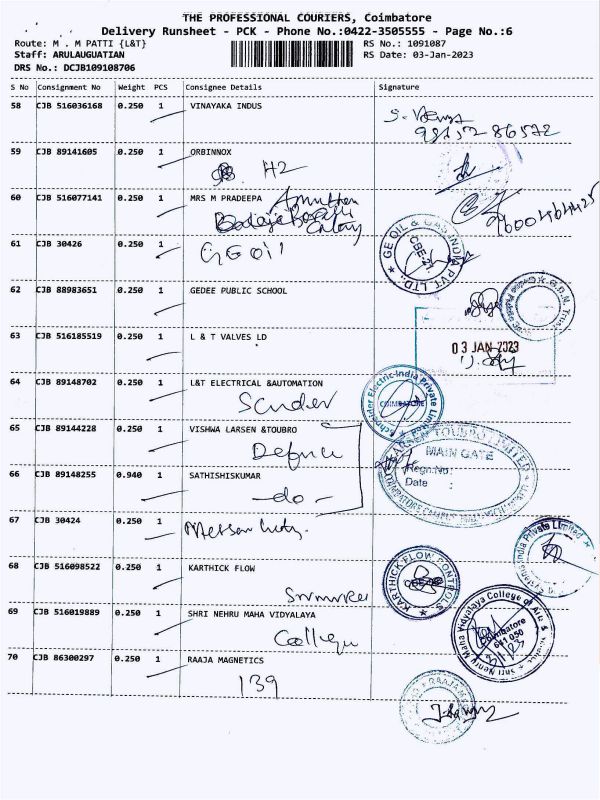 THE PROFESSIONAL COURIERS, Coimbatore
Delivery Runsheet - PCK - Phone No.:0422-3505555 - Page No.:6
Route: M . M PATTI {L&T}
RS No.: 1091087
Staff: ARULAUGUATIAN
RS Date: 03-Jan-2023
DRS No.: DCJB109108706
S No Consignment No Weight PCS Consignee Details Signature
58 CJB 516036168 0.250 1 VINAYAKA INDUS
59 CJB 89141605 0.250 1 ORBINNOX
H2
60 CJB 516077141 0.250 1 MRS M PRADEEPA
61 CJB 30426 0.250 1
GE Oil
GE OIL & GAS INDIA PVT. LTD.
CBE-21
62 CJB 88983651 0.250 1 GEDEE PUBLIC SCHOOL
63 CJB 516185519 0.250 1 L & T VALVES LD
03 JAN 2023
64 CJB 89148702 0.250 1 L&T ELECTRICAL &AUTOMATION
Schneider Electric India Private Limited
COIMBATORE
65 CJB 89144228 0.250 1 VISHWA LARSEN &TOUBRO
Defence
LARSEN & TOUBRO LIMITED
MAIN GATE
Regn.No:
Date :
66 CJB 89148255 0.940 1 SATHISHISKUMAR
- do -
67 CJB 30424 0.250 1
India Private Limited
68 CJB 516098522 0.250 1 KARTHICK FLOW
KARTHICK FLOW CONTROLS
69 CJB 516019889 0.250 1 SHRI NEHRU MAHA VIDYALAYA
College
Shri Nehru Maha Vidyalaya College of Arts & Science
Coimbatore
641 050
70 CJB 86300297 0.250 1 RAAJA MAGNETICS
139